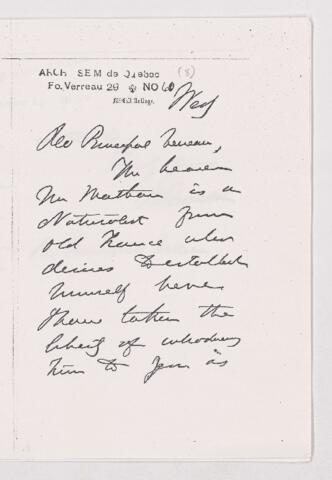 ARCH SEM de Quebec (8)
Fo. Verreau 29 NO 60
Wed
Rev Principal Verreau,
The bearer
Mr Mathan is a
Naturalist from
old France who
desires to establish
himself here
I have taken the
liberty of introducing
him to you as